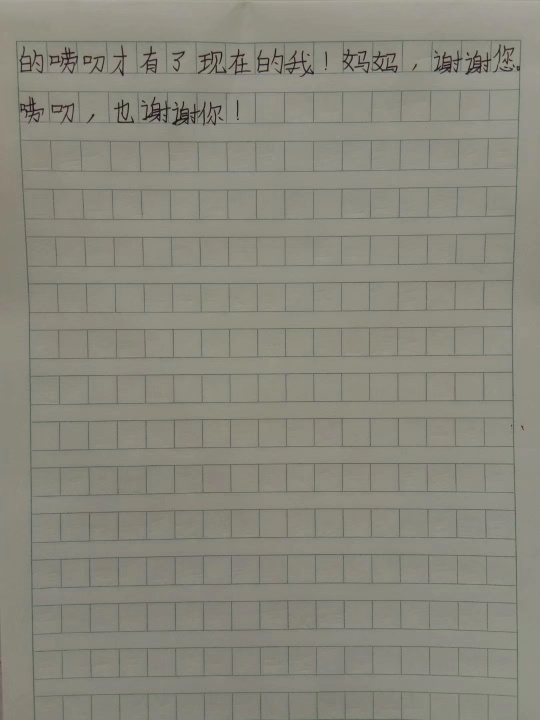 的唠叨才有了现在的我！妈妈，谢谢您。
唠叨，也谢谢你！